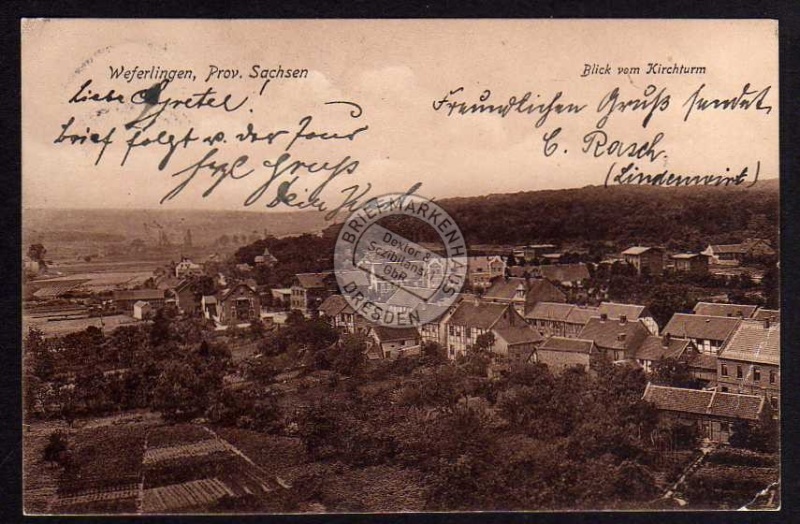 Weferlingen, Prov. Sachsen
Blick vom Kirchturm
Liebe Gretel!
Brief folgt v. der Tour
Hzl Gruß
Dein
Freundlichen Gruß sendet
C. Rasch
(Lindenwirt)
BRIEFMARKENHAUS
Dextor &
Scibilianş
GbR
DRESDEN